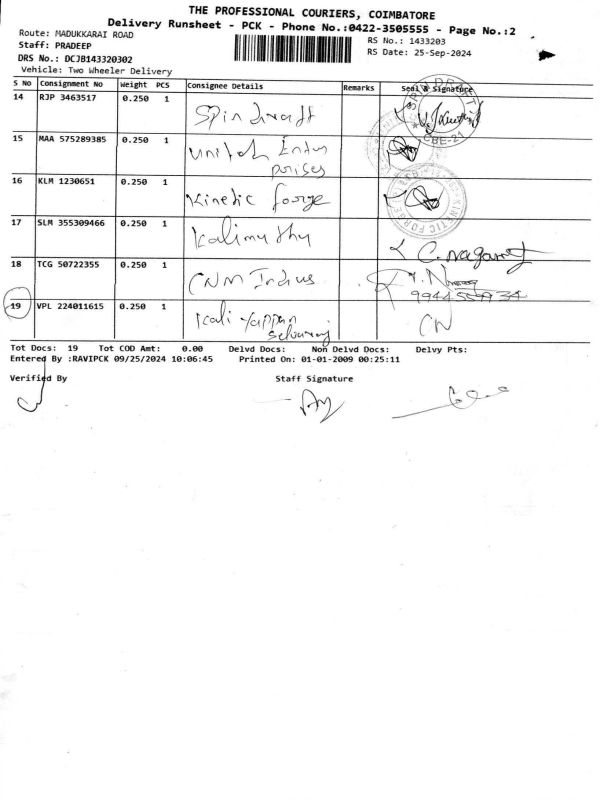 THE PROFESSIONAL COURIERS, COIMBATORE
Delivery Runsheet - PCK - Phone No.:0422-3505555 - Page No.:2
Route: MADUKKARAI ROAD
RS No.: 1433203
Staff: PRADEEP
RS Date: 25-Sep-2024
DRS No.: DCJB143320302
Vehicle: Two Wheeler Delivery
S No Consignment No Weight PCS Consignee Details Remarks Seal & Signature
14 RJP 3463517 0.250 1
15 MAA 575289385 0.250 1 United
16 KLM 1230651 0.250 1 Kinetic forge
17 SLM 355309466 0.250 1 Kalimuthu
C. Nagaraj
18 TCG 50722355 0.250 1 CNM Indus
19 VPL 224011615 0.250 1 Kali yappan
CN
CBE-21
KINETIC FORGE
Tot Docs: 19 Tot COD Amt: 0.00 Delvd Docs: Non Delvd Docs: Delvy Pts:
Entered By :RAVIPCK 09/25/2024 10:06:45 Printed On: 01-01-2009 00:25:11
Verified By Staff Signature